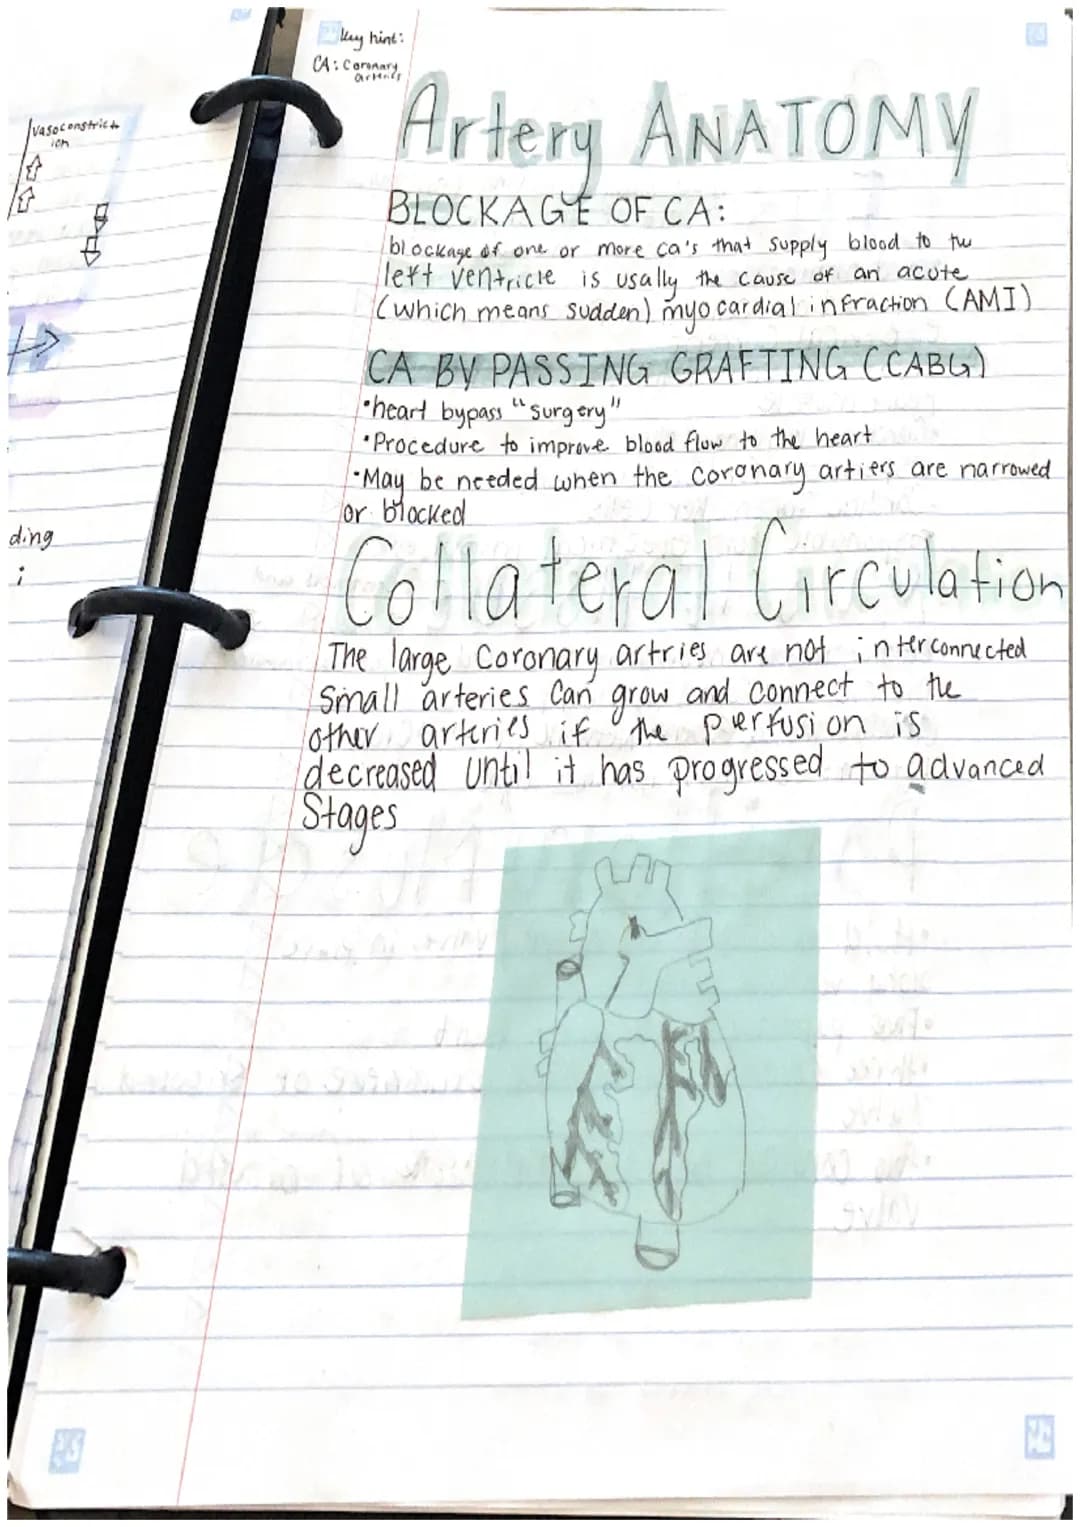 Key hint:
CA: Coronary
arteries
Vasoconstrict
ion
Artery ANATOMY
BLOCKAGE OF CA:
blockage of one or more ca's that supply blood to the
left ventricle is usally the cause of an acute
(which means sudden) myocardial infraction (AMI)
CA BY PASSING GRAFTING (CABG)
•heart bypass "surgery"
•Procedure to improve blood flow to the heart
•May be needed when the coronary artiers are narrowed
or blocked
ding
Collateral Circulation
The large Coronary artries are not interconnected
Small arteries can grow and connect to the
other arteries if the perfusion is
decreased until it has progressed to advanced
Stages